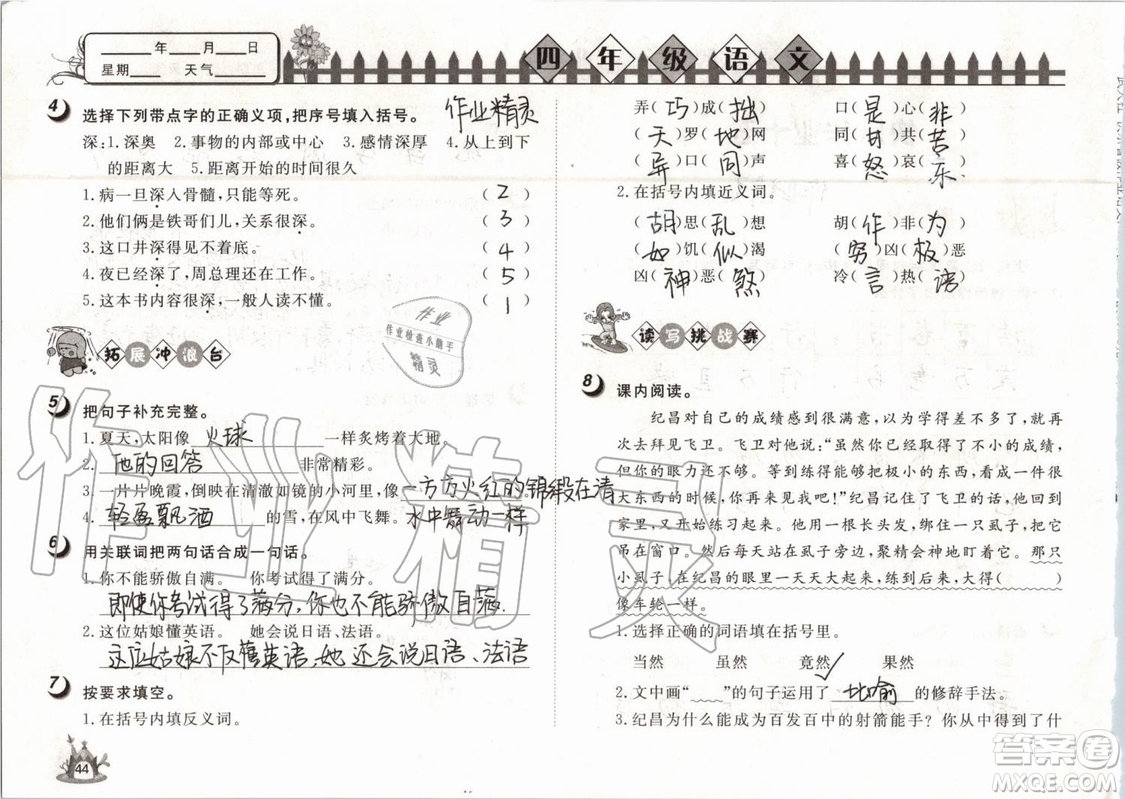 ____年____月____日
星期____ 天气____
四年级语文
4 选择下列带点字的正确义项,把序号填入括号。 作业精灵
深:1.深奥 2.事物的内部或中心 3.感情深厚 4.从上到下
的距离大 5.距离开始的时间很久
1.病一旦深入骨髓,只能等死。 ( 2 )
2.他们俩是铁哥们儿,关系很深。 ( 3 )
3.这口井深得见不着底。 ( 4 )
4.夜已经深了,周总理还在工作。 ( 5 )
5.这本书内容很深,一般人读不懂。 ( 1 )
作业
作业检查小能手
精灵
拓展冲浪台
5 把句子补充完整。
1.夏天,太阳像 火球 一样炙烤着大地。
2. 他的回答 非常精彩。
3.一片片晚霞,倒映在清澈如镜的小河里,像一方方火红的锦缎在清
4. 轻盈飘洒 的雪,在风中飞舞。 水中舞动一样
6 用关联词把两句话合成一句话。
1.你不能骄傲自满。 你考试得了满分。
即使你考试得了满分,你也不能骄傲自满.
2.这位姑娘懂英语。 她会说日语、法语。
这位姑娘不仅懂英语,她还会说日语、法语
7 按要求填空。
1.在括号内填反义词。
44
弄(巧)成(拙) 口(是)心(非)
(天)罗(地)网 同(甘)共(苦)
(异)口(同)声 喜(怒)哀(乐)
2.在括号内填近义词。
(胡)思(乱)想 胡(作)非(为)
(如)饥(似)渴 (穷)凶(极)恶
凶(神)恶(煞) 冷(言)热(语)
读写挑战赛
8 课内阅读。
纪昌对自己的成绩感到很满意,以为学得差不多了,就再
次去拜见飞卫。飞卫对他说:“虽然你已经取得了不小的成绩,
但你的眼力还不够。等到练得能把极小的东西,看成一件很
大的东西的时候,你再来见我吧!”纪昌记住了飞卫的话,回到
家里,又开始练习起来。他用一根长头发,绑住一只虱子,把它
吊在窗口。然后每天站在虱子旁边,聚精会神地盯着它。那只
小虱子,在纪昌的眼里一天天大起来,练到后来,大得(____)
像车轮一样。
1.选择正确的词语填在括号里。
当然 虽然 竟然✓ 果然
2.文中画“﹏﹏”的句子运用了 比喻 的修辞手法。
3.纪昌为什么能成为百发百中的射箭能手?你从中得到了什
作业精灵
答案圈
MXQE.COM